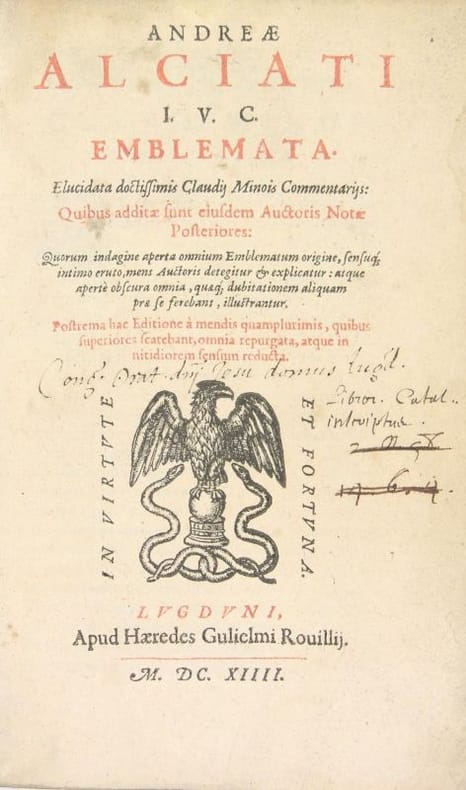 ANDREÆ
ALCIATI
I. V. C.
EMBLEMATA.
Elucidata doctissimis Claudij Minois Commentarijs:
Quibus additæ sunt eiusdem Auctoris Notæ
Posteriores:
Quorum indagine aperta omnium Emblematum origine, sensuq́;
intimo eruto, mens Auctoris detegitur & explicatur: atque
apertè obscura omnia, quæq́; dubitationem aliquam
præ se ferebant, illustrantur.
Postrema hac Editione à mendis quamplurimis, quibus
superiores scatebant, omnia repurgata, atque in
nitidiorem sensum reducta.
Cong. Orat. dñj Jesu domus Lugd.
Libror. Catal..
inscriptus.
IN VIRTVTE
ET FORTVNA.
LVGDVNI,
Apud Hæredes Gulielmi Rouillij.
M. DC. XIIII.